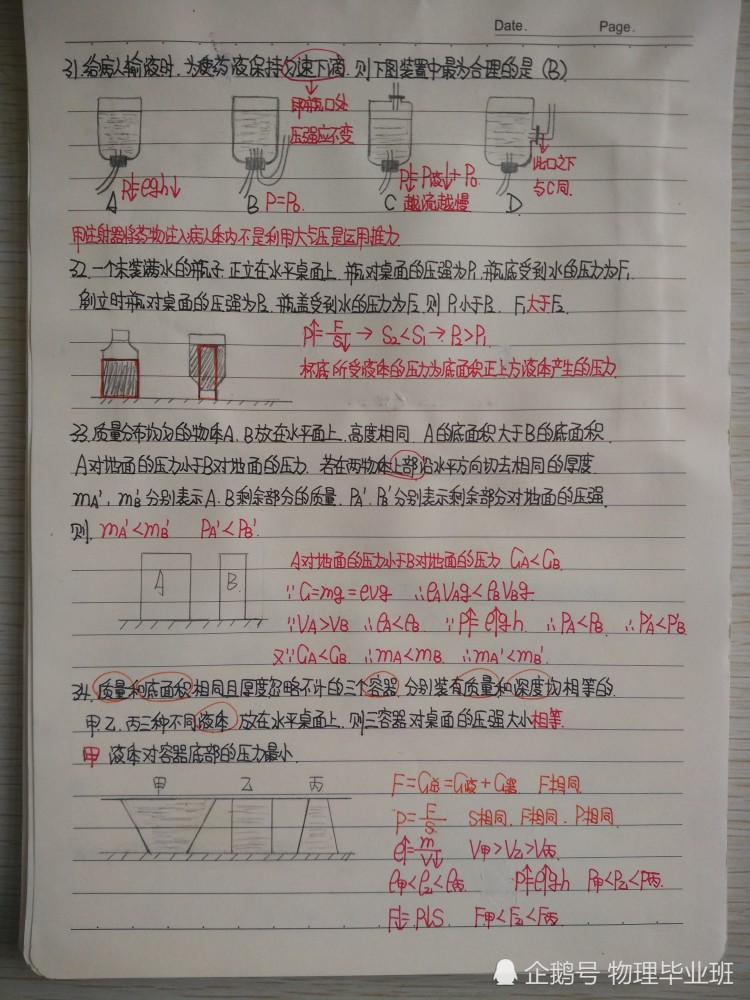 Date. Page.
31.给病人输液时,为使药液保持匀速下滴,则下图装置中最为合理的是 (B)
即瓶口处
压强应不变
此口之下
与C同.
A P↓=ρgh↓
B P=P₀.
C P↓=P液↓+P₀
越流越慢
D
用注射器将药物注入病人体内不是利用大气压是运用推力
32.一个未装满水的瓶子.正立在水平桌面上.瓶对桌面的压强为P₁.瓶底受到水的压力为F₁.
倒立时瓶对桌面的压强为P₂.瓶盖受到水的压力为F₂.则 P₁小于P₂. F₁大于F₂.
P↑=F/S↓ → S₂<S₁ → P₂>P₁
杯底所受液体的压力为底面积正上方液体产生的压力
33.质量分布均匀的物体A.B放在水平面上.高度相同.A的底面积大于B的底面积.
A对地面的压力小于B对地面的压力.若在两物体上部沿水平方向切去相同的厚度.
mA′.mB′分别表示A.B剩余部分的质量.PA′.PB′分别表示剩余部分对地面的压强.
则. mA′<mB′ PA′<PB′.
A B
A对地面的压力小于B对地面的压力 GA<GB.
∵G=mg=ρvg ∴ρAVAg<ρBVBg
∵VA>VB ∴ρA<ρB. ∵P↑=ρ↑gh. ∴PA<PB. ∴P′A<P′B
又∵GA<GB.∴mA<mB.∴mA′<mB′.
34.质量和底面积相同且厚度忽略不计的三个容器.分别装有质量和深度均相等的.
甲乙.丙三种不同液体.放在水平桌面上.则三容器对桌面的压强大小相等.
甲 液体对容器底部的压力最小.
甲 乙 丙
F=G总=G液+G器. F相同.
P=F/S S相同.F相同.P相同.
ρ↑=m/V↓ V甲>V乙>V丙.
ρ甲<ρ乙<ρ丙. P↑=ρ↑gh P甲<P乙<P丙.
F↓=P↓S. F甲<F乙<F丙.
企鹅号 物理毕业班